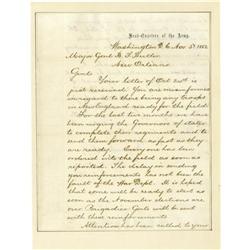 Head-Quarters of the Army,
Washington D.C. Nov. 3d 1862
Major Genl. B. F. Butler
New Orleans
Genl:
Your letter of Oct 20th is
just received. You are misinformed
in regard to there being any troops
in New England ready for the field.
For the last two months we have
been urging the Governors of states
to complete their regiments and to
send them forward as fast as they
are ready. Every one has been
ordered into the field as soon as
reported. The delay in sending
you reinforcements has not been the
fault of the War Dept. It is hoped
that some will be ready to start as
soon as the November elections are
over. Brigadier Genls will be sent
with these reinforcements.
Attention has been called to your